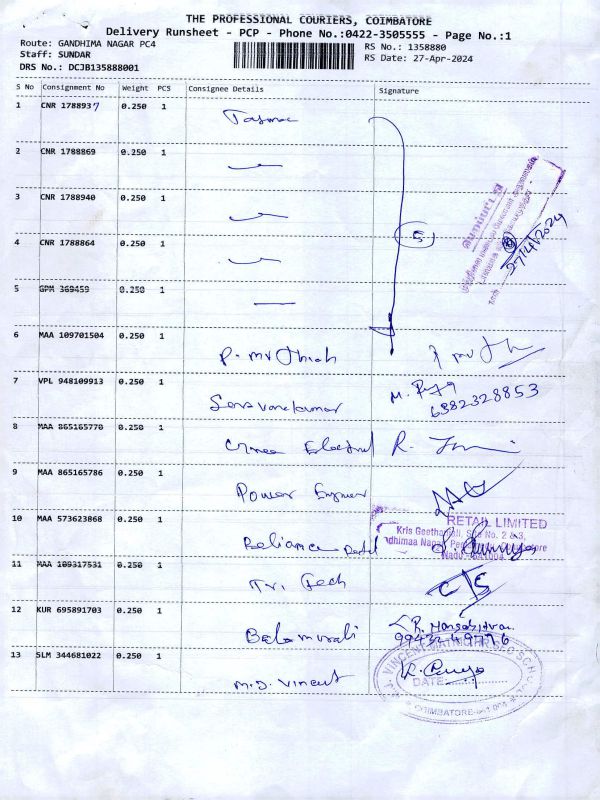 THE PROFESSIONAL COURIERS, COIMBATORE
Delivery Runsheet - PCP - Phone No.:0422-3505555 - Page No.:1
Route: GANDHIMA NAGAR PC4
RS No.: 1358880
Staff: SUNDAR
RS Date: 27-Apr-2024
DRS No.: DCJB135888001
S No Consignment No Weight PCS Consignee Details Signature
1 CNR 1788937 0.250 1
2 CNR 1788869 0.250 1
3 CNR 1788940 0.250 1
4 CNR 1788864 0.250 1
5
27/4/2024
5 GPM 369459 0.250 1
6 MAA 109701504 0.250 1
7 VPL 948109913 0.250 1
Saravanakumar
6382328853
8 MAA 865165770 0.250 1
9 MAA 865165786 0.250 1
Power Engineer
10 MAA 573623868 0.250 1
Reliance Retail
RETAIL LIMITED
Kris Geethanjali, Site No. 2 & 3,
11 MAA 109317531 0.250 1
Tech
12 KUR 695891703 0.250 1
Balamurali
9943249776
13 SLM 344681022 0.250 1
M.D. Vincent
DATE:
COIMBATORE-641 004